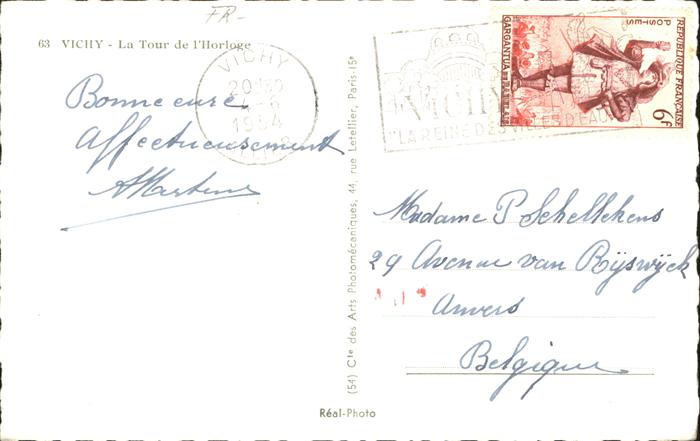 FR-
63 VICHY - La Tour de l'Horloge
VICHY
1954
VICHY
"LA REINE DES VILLES D'EAUX"
REPUBLIQUE FRANÇAISE
POSTES
GARGANTUA DE RABELAIS
6f
Bonne cure
Affectueusement
AMartens
(54) Cie des Arts Photomécaniques, 44, rue Letellier, Paris-15e
Madame P Schellekens
29 Avenue van Rijswijck
Anvers
Belgique
Réal-Photo